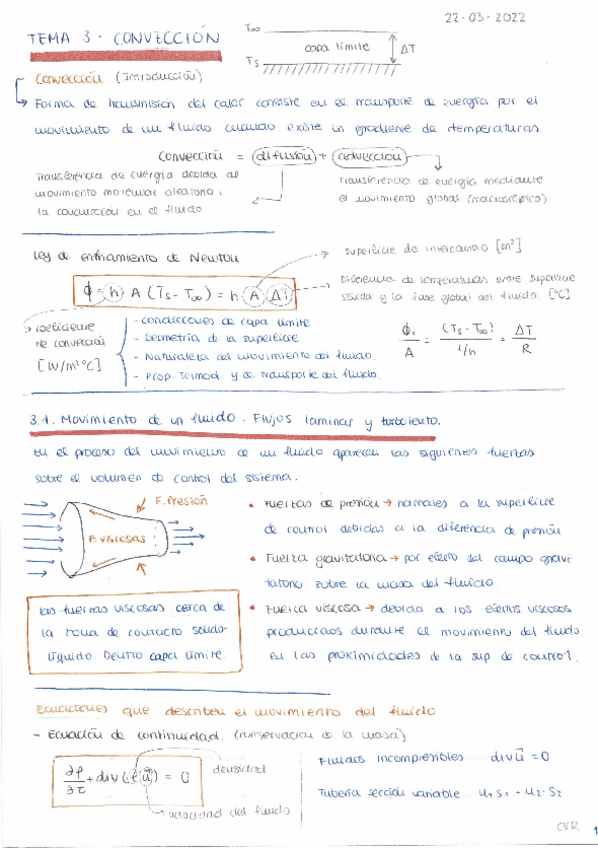 22-03-2022
TEMA 3. CONVECCIÓN
T∞
capa límite
ΔT
Ts
CONVECCIÓN (Introducción)
Forma de transmisión del calor consiste en el transporte de energía por el
movimiento de un fluido cuando existe un gradiente de temperaturas.
Convección = difusión + advección
Transferencia de energía debida al
movimiento molecular aleatorio.
la conducción en el fluido
Transferencia de energía mediante
el movimiento global (macroscópico)
Ley de enfriamiento de Newton
superficie de intercambio [m²]
ϕ = h A (Ts - T∞) = h · A · ΔT
Diferencia de temperaturas entre superficie
sólida y la fase global del fluido. [°C]
coeficiente
de convección
[W/m²°C]
- condiciones de capa límite
- Geometría de la superficie
- Naturaleza del movimiento del fluido.
- Prop. Termod. y de transporte del fluido.
ϕ/A = (Ts - T∞)/(1/h) = ΔT/R
3.1. Movimiento de un fluido. Flujos laminar y turbulento.
En el proceso del movimiento de un fluido aparecen las siguientes fuerzas
sobre el volumen de control del sistema.
F. Presión
F. viscosas
• Fuerzas de presión → normales a la superficie
de control debidas a la diferencia de presión
• Fuerza gravitatoria → por efecto del campo gravi
tatorio sobre la masa del fluido.
• Fuerza viscosa → debida a los efectos viscosos
producidos durante el movimiento del fluido
en las proximidades de la sup de control.
las fuerzas viscosas cerca de
la zona de contacto sólido
líquido. Dentro capa límite.
Ecuaciones que describen el movimiento del fluido
- Ecuación de continuidad. (conservación de la masa)
∂ρ/∂τ + div (ρ ū) = 0
densidad
velocidad del fluido
Fluidos incompresibles div ū = 0
Tubería sección variable u₁ S₁ = u₂ · S₂
CVR
1